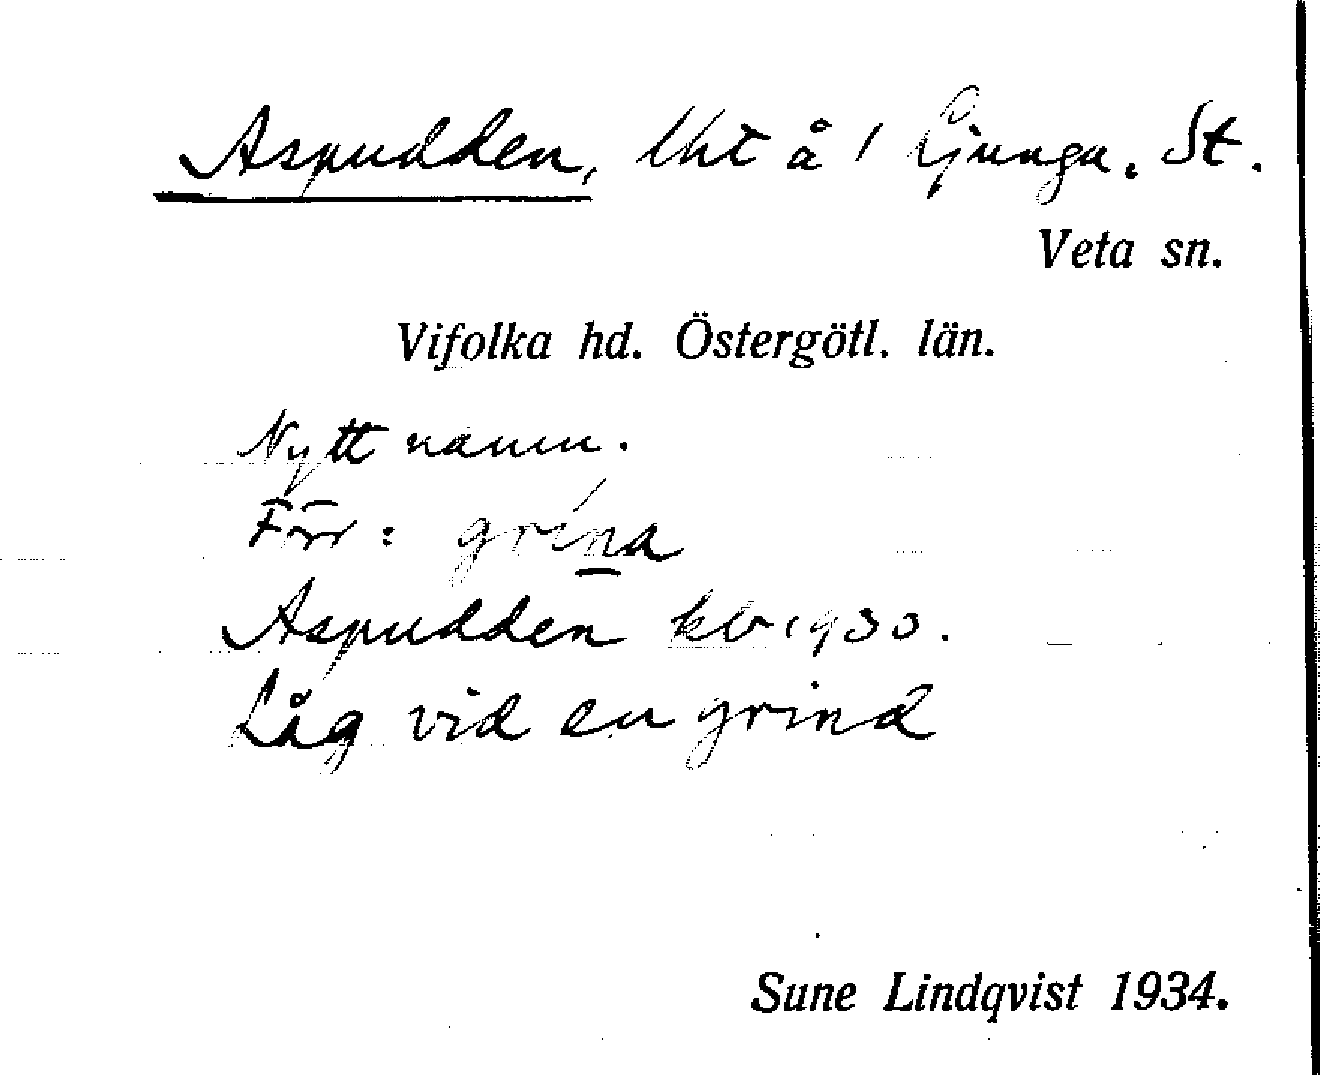 Aspudden, lht å 1 Ljunga. St.
Veta sn.
Vifolka hd. Östergötl. län.
Nytt namn.
Förr: grína
Aspudden kb 1930.
Låg vid en grind
Sune Lindqvist 1934.